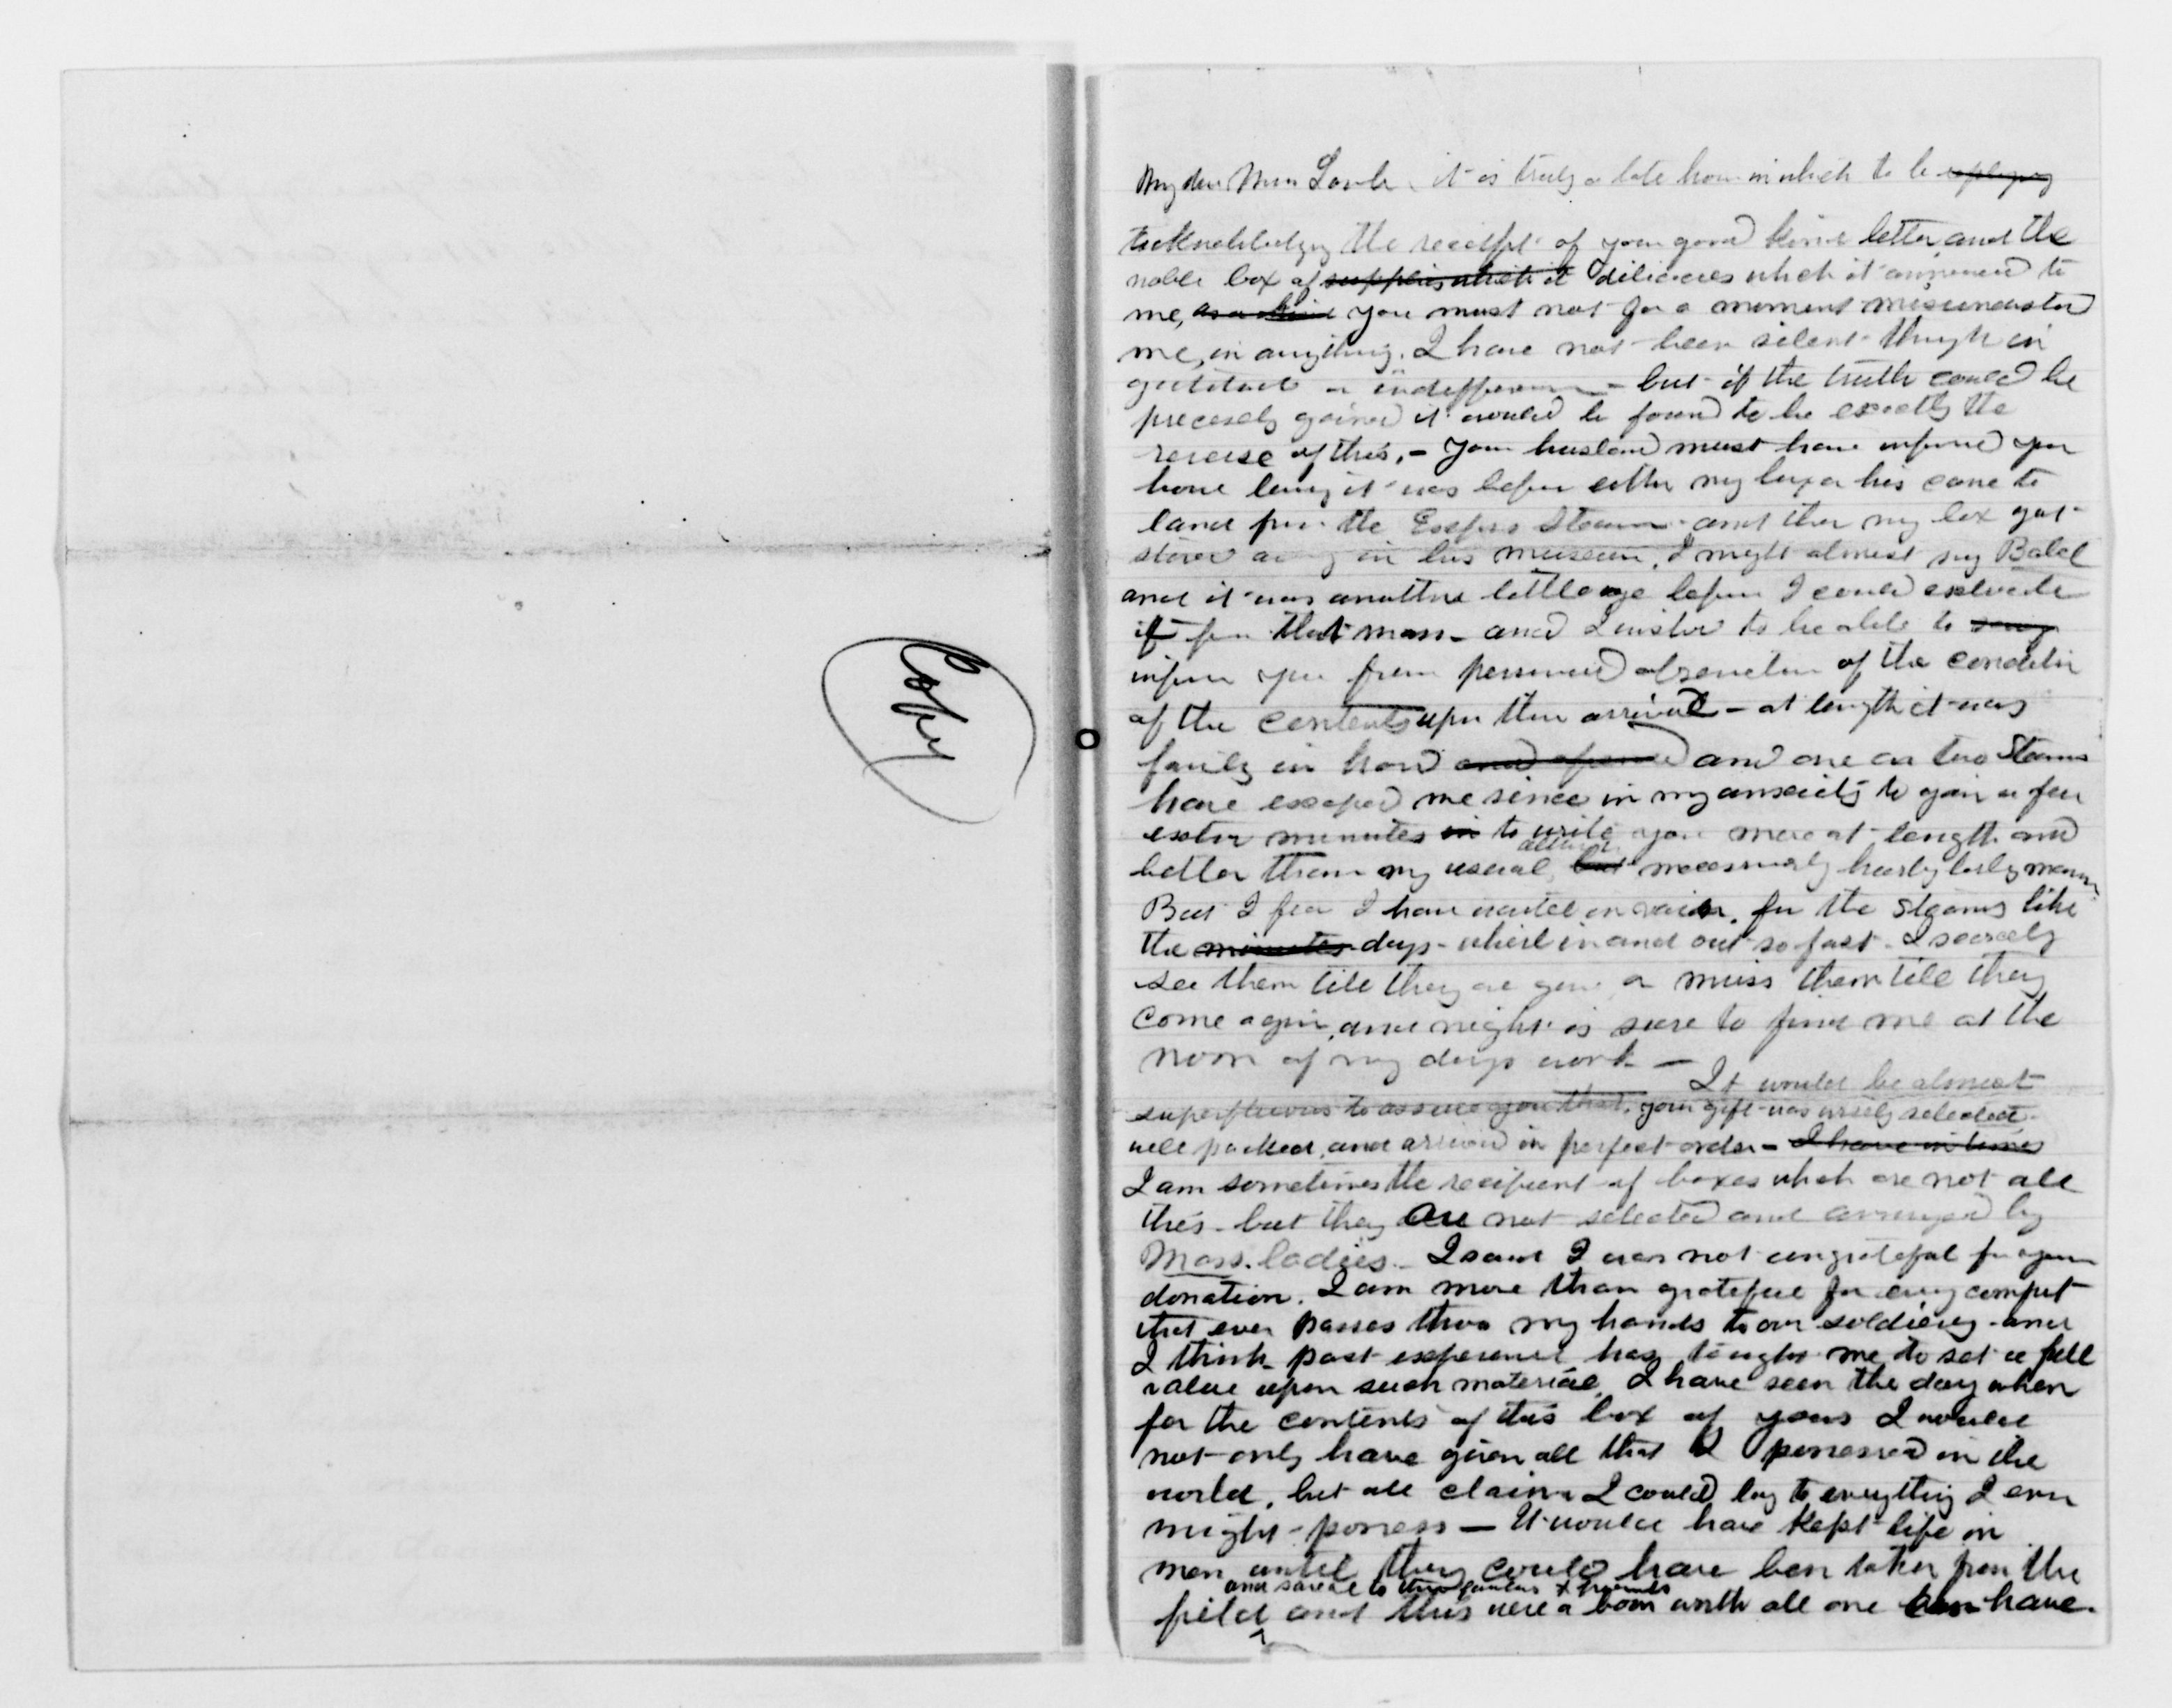 Copy
My dear Mrs Lamb, it is truly a late hour in which to be replying
acknowledging the receipt of your good kind letter and the
noble box of supplies which it delicacies which it announced to
me, you must not for a moment misunderstand
me, in anything. I have not been silent through in
gratitude or indifference - but if the truth could be
precisely gained it would be found to be exactly the
reverse of this, - Your husband must have informed you
how long it was before either my box or his came to
land from the Express Steamer and then my box got
stored away in his museum, I might almost say Babel
and it was another little age before I could extricate
it from that mass - and I wished to be able to say
inform you from personal observation of the condition
of the contents upon their arrival - at length it was
fairly in hand and opened and one or two Steamers
have escaped me since in my anxiety to gain a few
extra minutes in to write you more at length and
better than my usual, but necessarily hasty manner
But I fear I have waited in vain, for the steamers like
the minutes days - whirl in and out so fast - I scarcely
see them till they are gone, or miss them till they
come again, and night is sure to find me at the
noon of my days work -
It would be almost
superfluous to assure you that, your gift was wisely selected
well packed, and arrived in perfect order - I have in times
I am sometimes the recipient of boxes which are not all
this - but they are not selected and arranged by
Mass. ladies - I said I was not ungrateful for your
donation. I am more than grateful for every comfort
that ever passes thro my hands to our soldiery - and
I think past experience has taught me to set a full
value upon such material, I have seen the day when
for the contents of this box of yours I would
not only have given all that I possessed in the
world, but all claim I could lay to everything I ever
might possess - It would have kept life in
men until they could have been taken from the
and saved to their families & friends
field and this were a boon worth all one can have